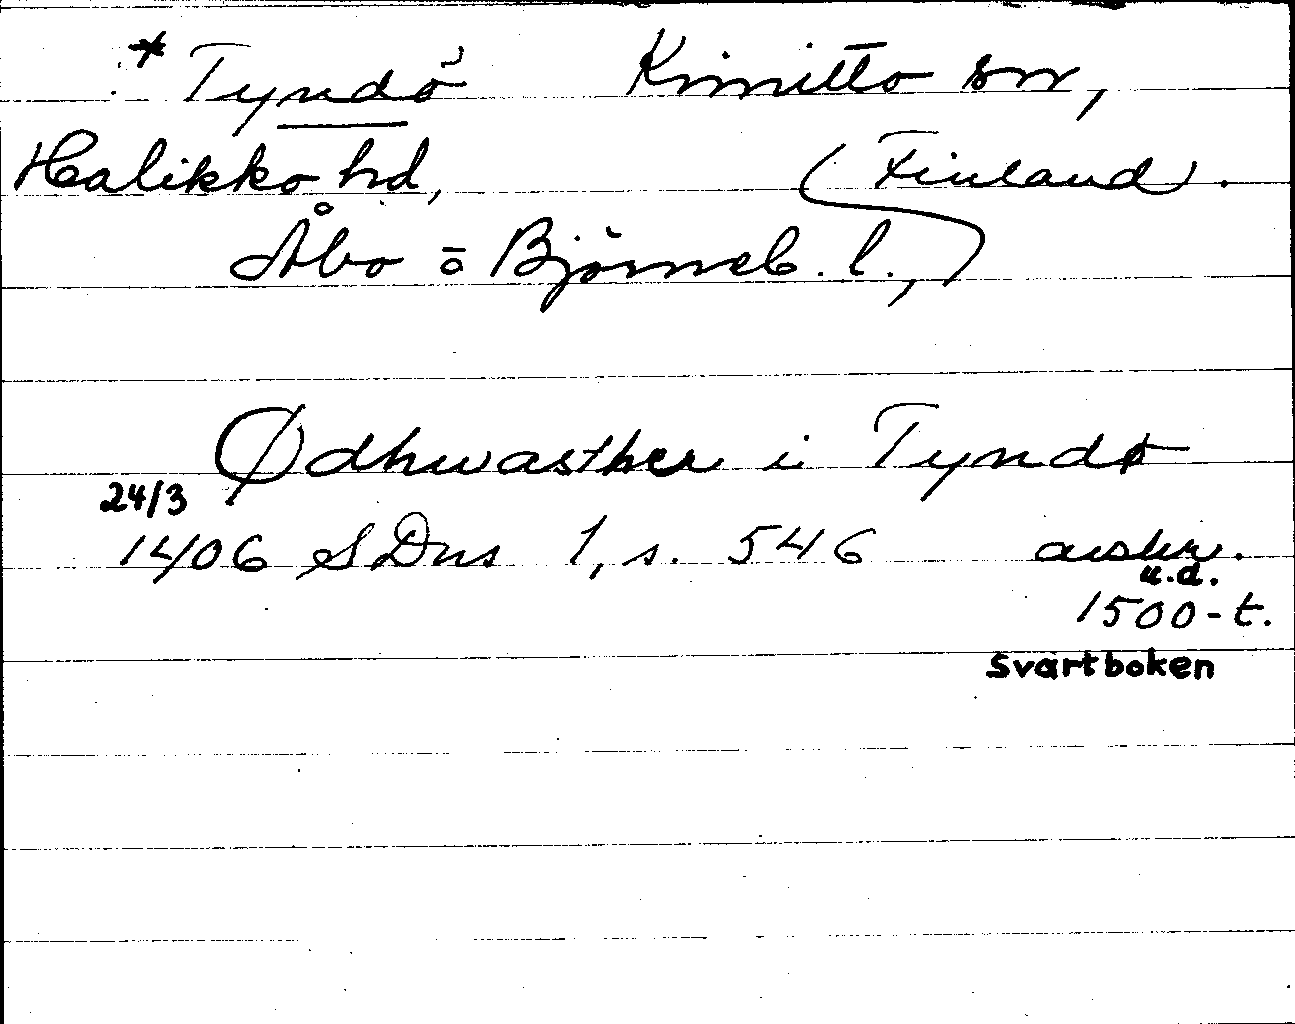 * Tyndö Kimitto sn,
Halikko hd, (Finland.
Åbo o Björneb. l.,)
Ødhwasther i Tyndø
24/3
1406 SDns 1, s. 546 avskr.
u.d.
1500-t.
Svartboken